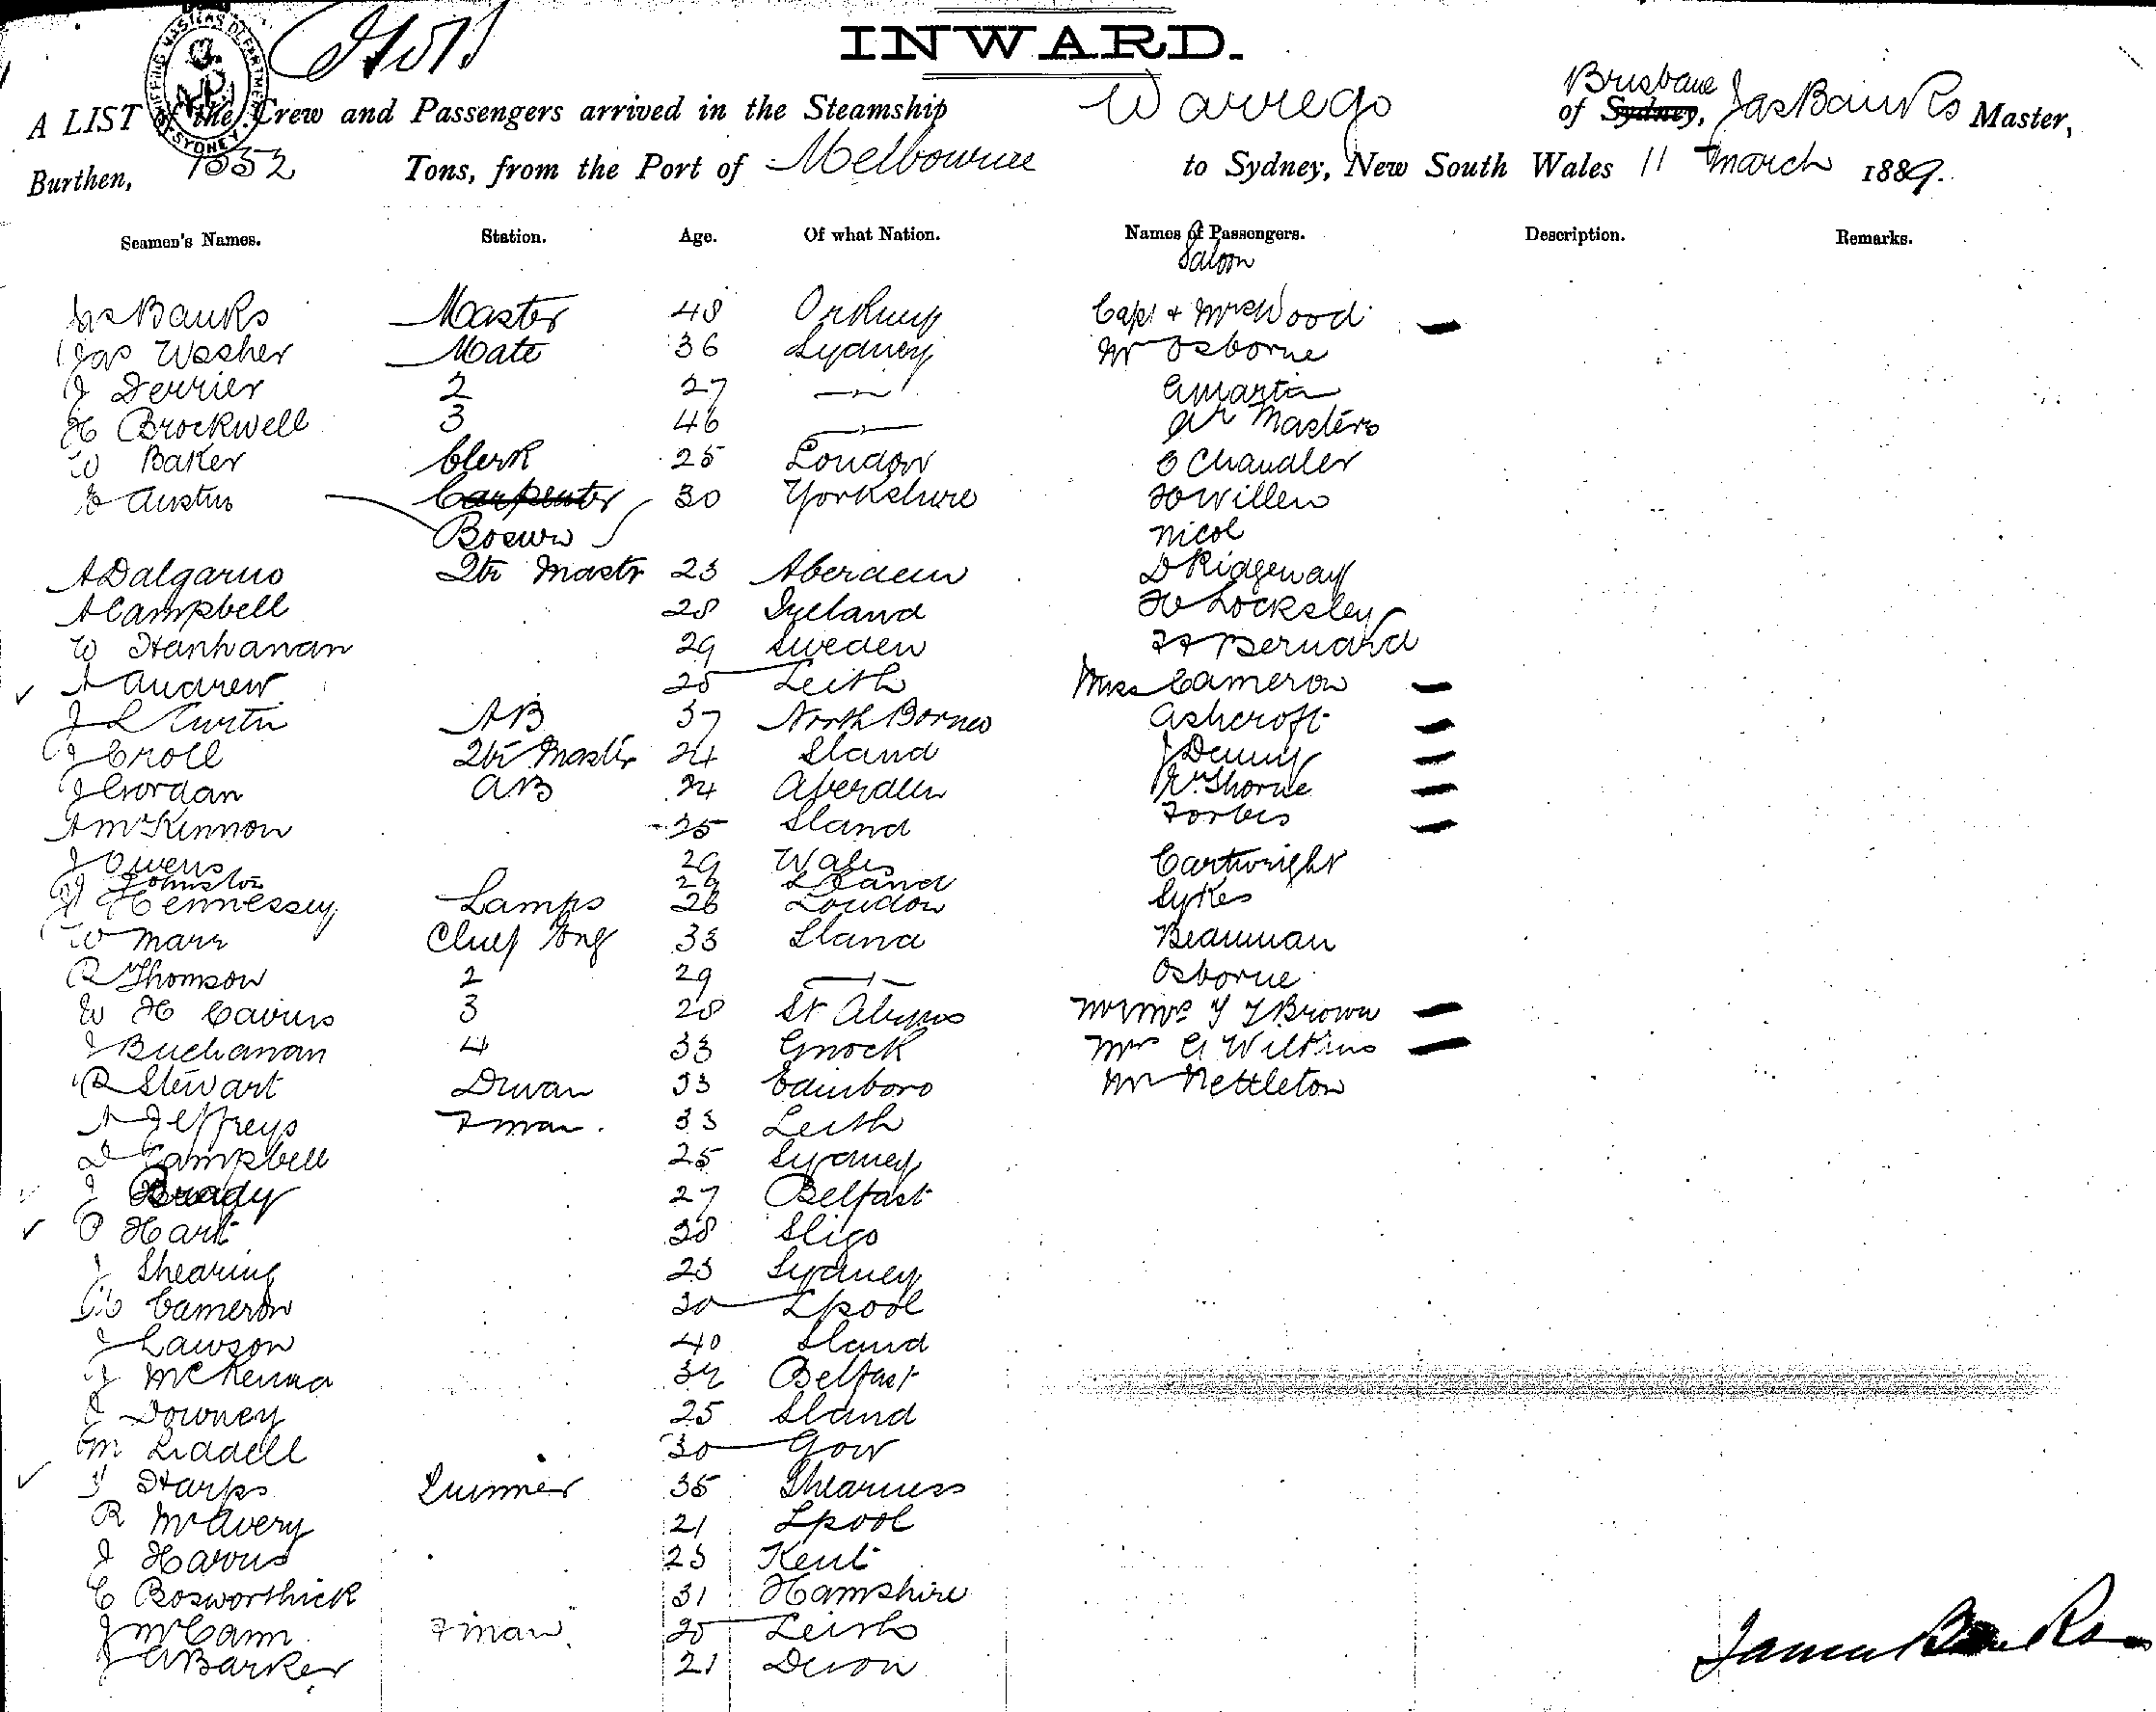 INWARD.
SHIPPING MASTERS DEPARTMENT SYDNEY
A LIST of the Crew and Passengers arrived in the Steamship Warrego of Sydney, Brisbane Jas Banks Master,
Burthen, 1552 Tons, from the Port of Melbourne to Sydney, New South Wales 11 March 1889.
Seamen's Names. Station. Age. Of what Nation. Names of Passengers. Description. Remarks.
Saloon
Jas Banks Master 48 Orkney Capt & Mrs Wood
Jas Washer Mate 36 Sydney Mr Osborne
J Derrier 2 27 " A Martin
H Brockwell 3 46 " Masters
W Baker Clerk 25 London C Chandler
E Austin Carpenter 30 Yorkshire H Willen
Bosun Nicol
A Dalgarno Qtr Mastr 23 Aberdeen D Ridgeway
A Campbell 28 Ireland H Locksley
W Hanhanan 29 Sweden Bernard
A Andrew 25 Leith Miss Cameron
J L Curtin AB 37 North Borneo Ashcroft
J Croll Qtr Mastr 24 Sland J Denny
J Gordan AB 24 Aberdeen Thorne
A McKinnon 25 Sland Forbes
J Owens 29 Wales Cartwright
Johnston 26 Sland
H Hennessey Lamps 26 London Sykes
W Marr Chief Eng 33 Sland Beauman
R Thomson 2 29 " Osborne
W H Cairns 3 28 St Mr & Mrs Brown
J Buchanan 4 33 Gnock Mrs G Wilkins
R Stewart Dman 33 Edinboro Mr Nettleton
A Jeffreys Fman 33 Leith
D Campbell 25 Sydney
J Brady 27 Belfast
P Hart 28 Sligo
J Shearing 23 Sydney
Cameron 30 Lpool
J Lawson 40 Sland
J McKenna 34 Belfast
J Downey 25 Sland
M Liddell 30 Gow
Harps 35 Shearness
R McAvery 21 Lpool
J Harris 23 Kent
C Bosworthick 31 Hamshire
J McCann Fman 20 Leith
J A Barker 21 Devon
James Banks